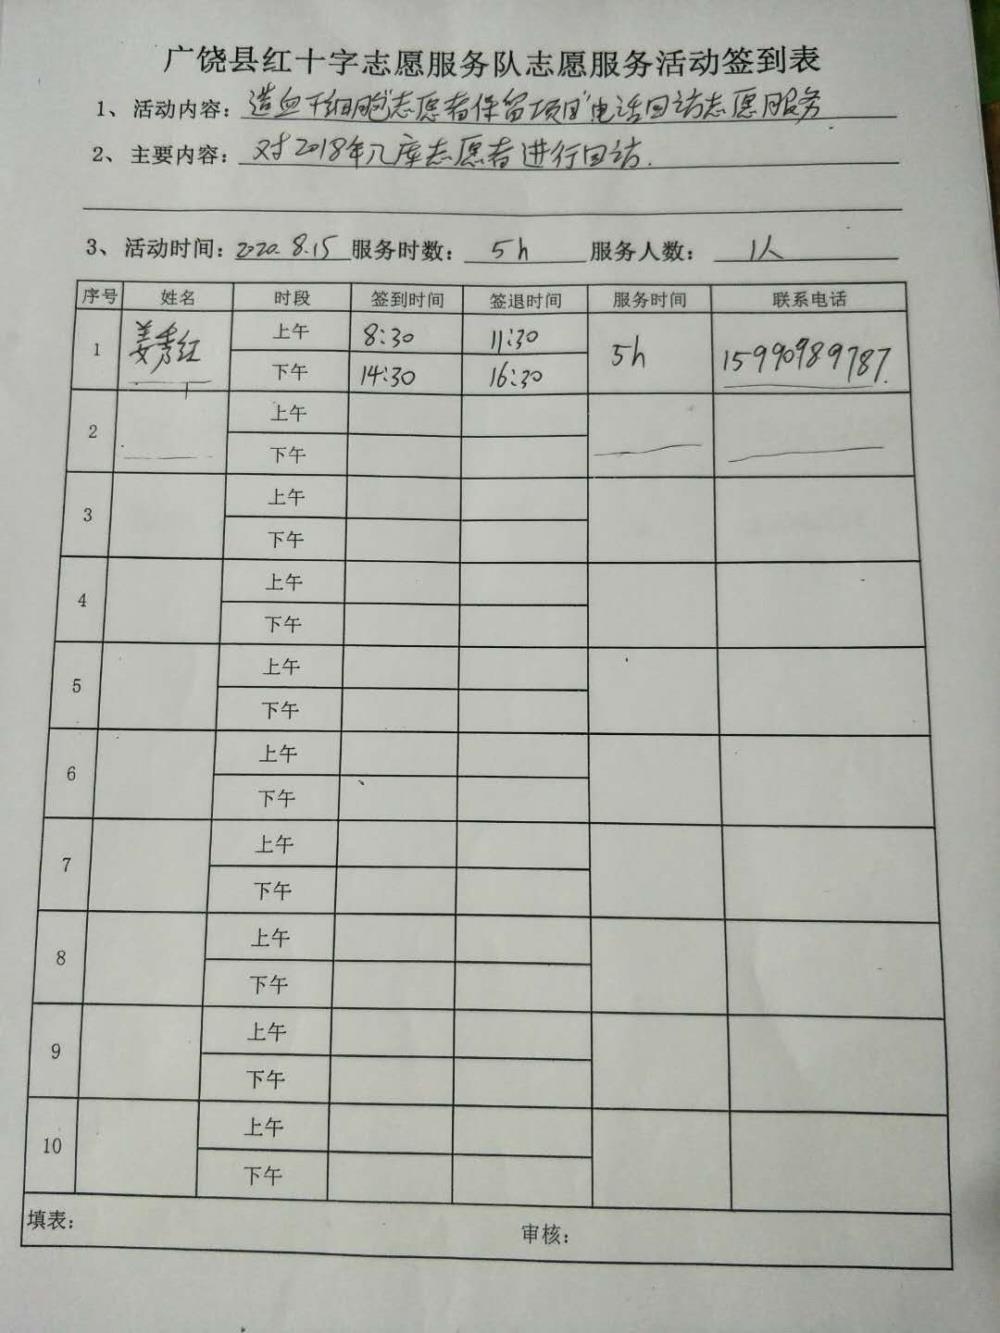 广饶县红十字志愿服务队志愿服务活动签到表
1、活动内容：造血干细胞"志愿者保留项目"电话回访志愿服务
2、主要内容：对2018年入库志愿者进行回访.
3、活动时间：2020.8.15 服务时数：5h 服务人数：1人
序号 姓名 时段 签到时间 签退时间 服务时间 联系电话
1 姜秀红 上午 8:30 11:30 5h 15990989787.
下午 14:30 16:30
2 上午
下午
3 上午
下午
4 上午
下午
5 上午
下午
6 上午
下午
7 上午
下午
8 上午
下午
9 上午
下午
10 上午
下午
填表： 审核：